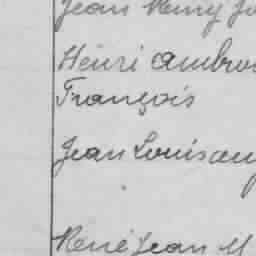 Jean Remy
Henri Ambroi
François
Jean Louis Aug
René Jean M